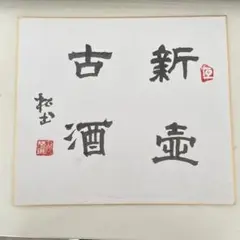 新壺
古酒